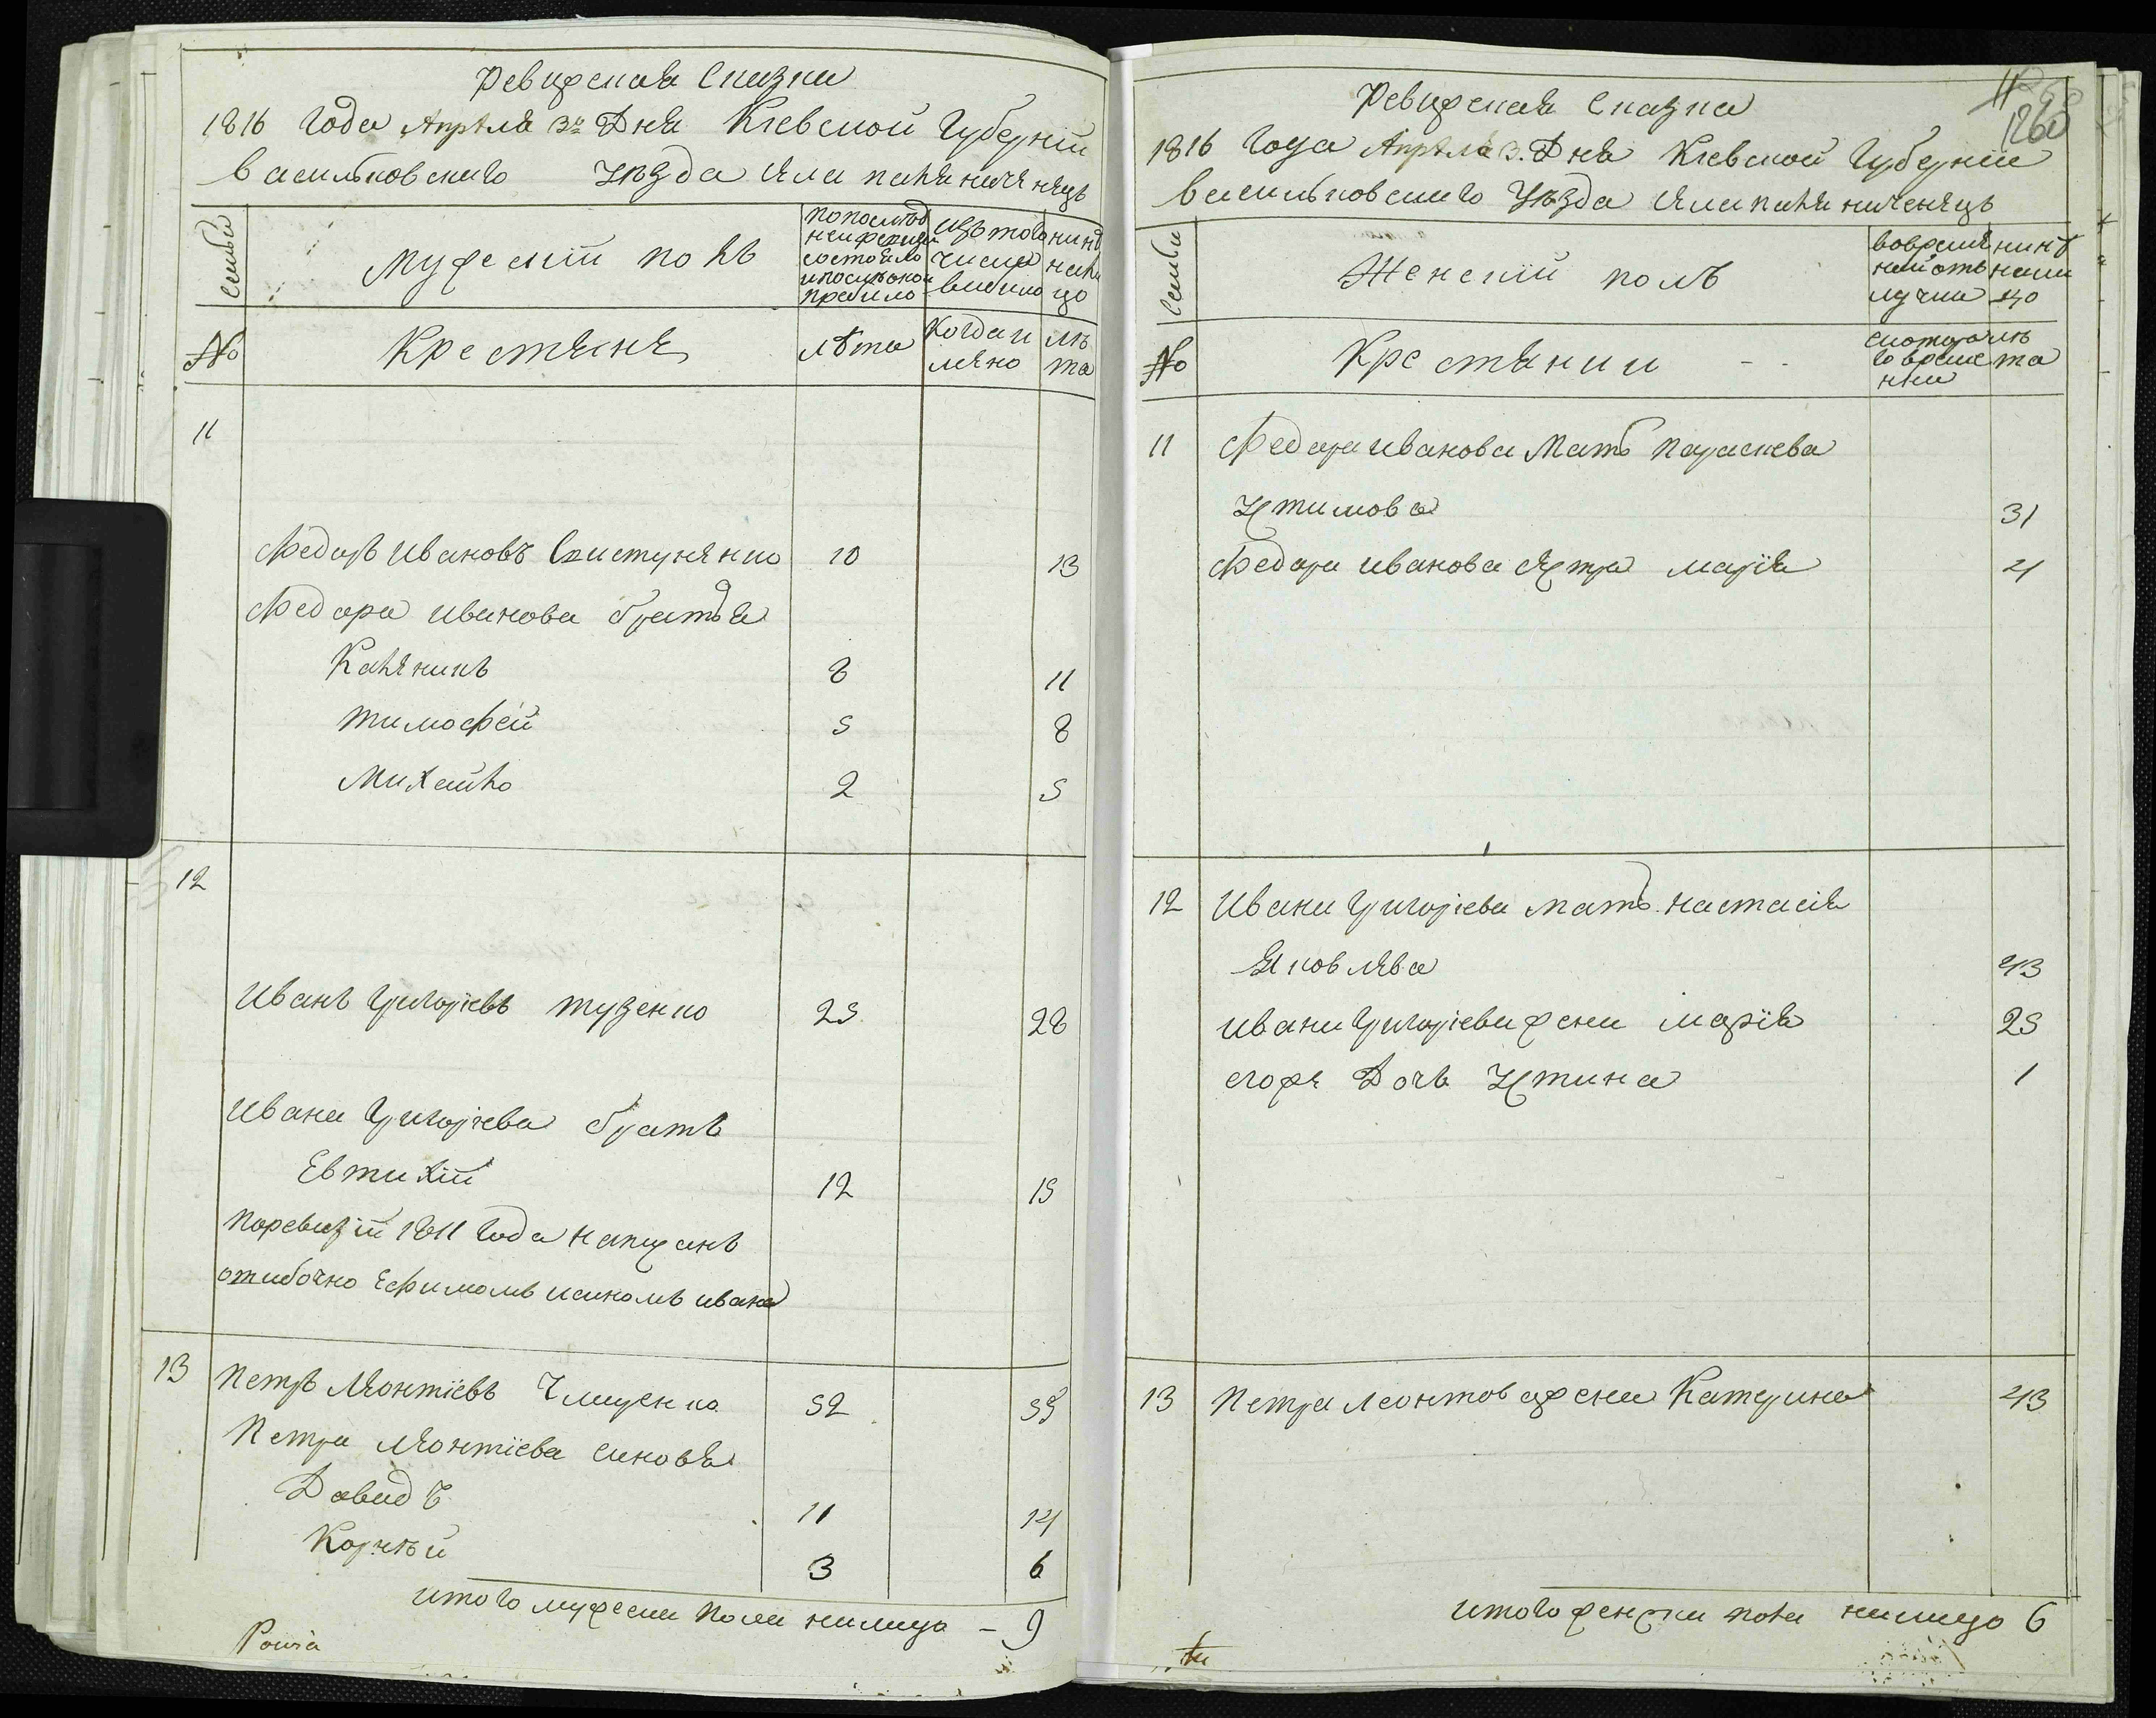 Ревизская Сказка
1816 Года Апрѣля 3го Дня Кіевской Губерніи
Васильковского Уезда села паляниченець
Семьи
Мужескій полъ
попослѣд
ней ревизіи
состояло
ипослѣоной
прибыло
изътого
числа
выбыло
нинѣ
нали
цо
№
Крестяне
лѣта
Когдаи
мено
лѣ
та
11
Федоръ Ивановъ Свистуненко 10 13
Федора Иванова братья
Каленикъ 8 11
Тимофей 5 8
Михайло 2 5
12
Иванъ Григорієвъ Тузенко 25 28
Ивана Григорієва братъ
Евтихій 12 15
поревизіи 1811 Года написанъ
ошибочно Ефимомъ исиномъ ивана
13 Петръ Леонтіевъ 52 55
Петра Леонтіева синовя
Давидъ 11 14
Корнѣй 3 6
итого мужеска пола налицо – 9
Ревизская Сказка
1260
1816 Года Апрѣля 3. Дня Кіевской Губерніи
Васильковского Уезда села паляниченець
Семьи
Женскій полъ
вовремен
ной отъ
лучки
нинѣ
нали
цо
№
Крестянки
скоторо
го време
нни
лѣ
та
11 Федора Иванова Мать Параскева
Устимова 31
Федора Иванова сестра Марія 4
12 Ивана Григорієва мать Настасія
Яковлева 43
Ивана Григорієва жена Марія 25
егоже Дочь Устина 1
13 Петра Леонтова жена Катерина 43
итого женска пола налицо 6